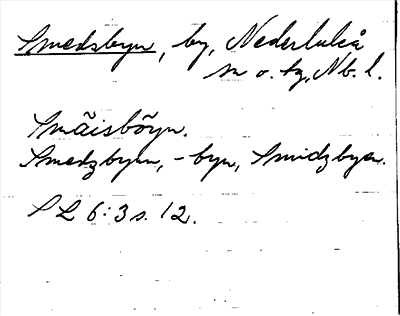 Smedsbyn, by, Nederluleå
sn o. tg, Nb. l.
Smãisbõyn.
Smedzbyen, -byn, Smidzbyen.
SL 6:3 s. 12.